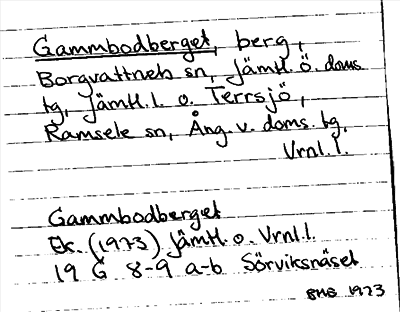 Gammbodberget, berg,
Borgvattnets sn, Jämtl. ö. doms.
tg, Jämtl. l. o. Terrsjö,
Ramsele sn, Ång. v. doms. tg,
Vrnl. l.
Gammbodberget
Ek. (1973) Jämtl. o. Vrnl. l.
19 G 8-9 a-b Sörviksnäset
1973